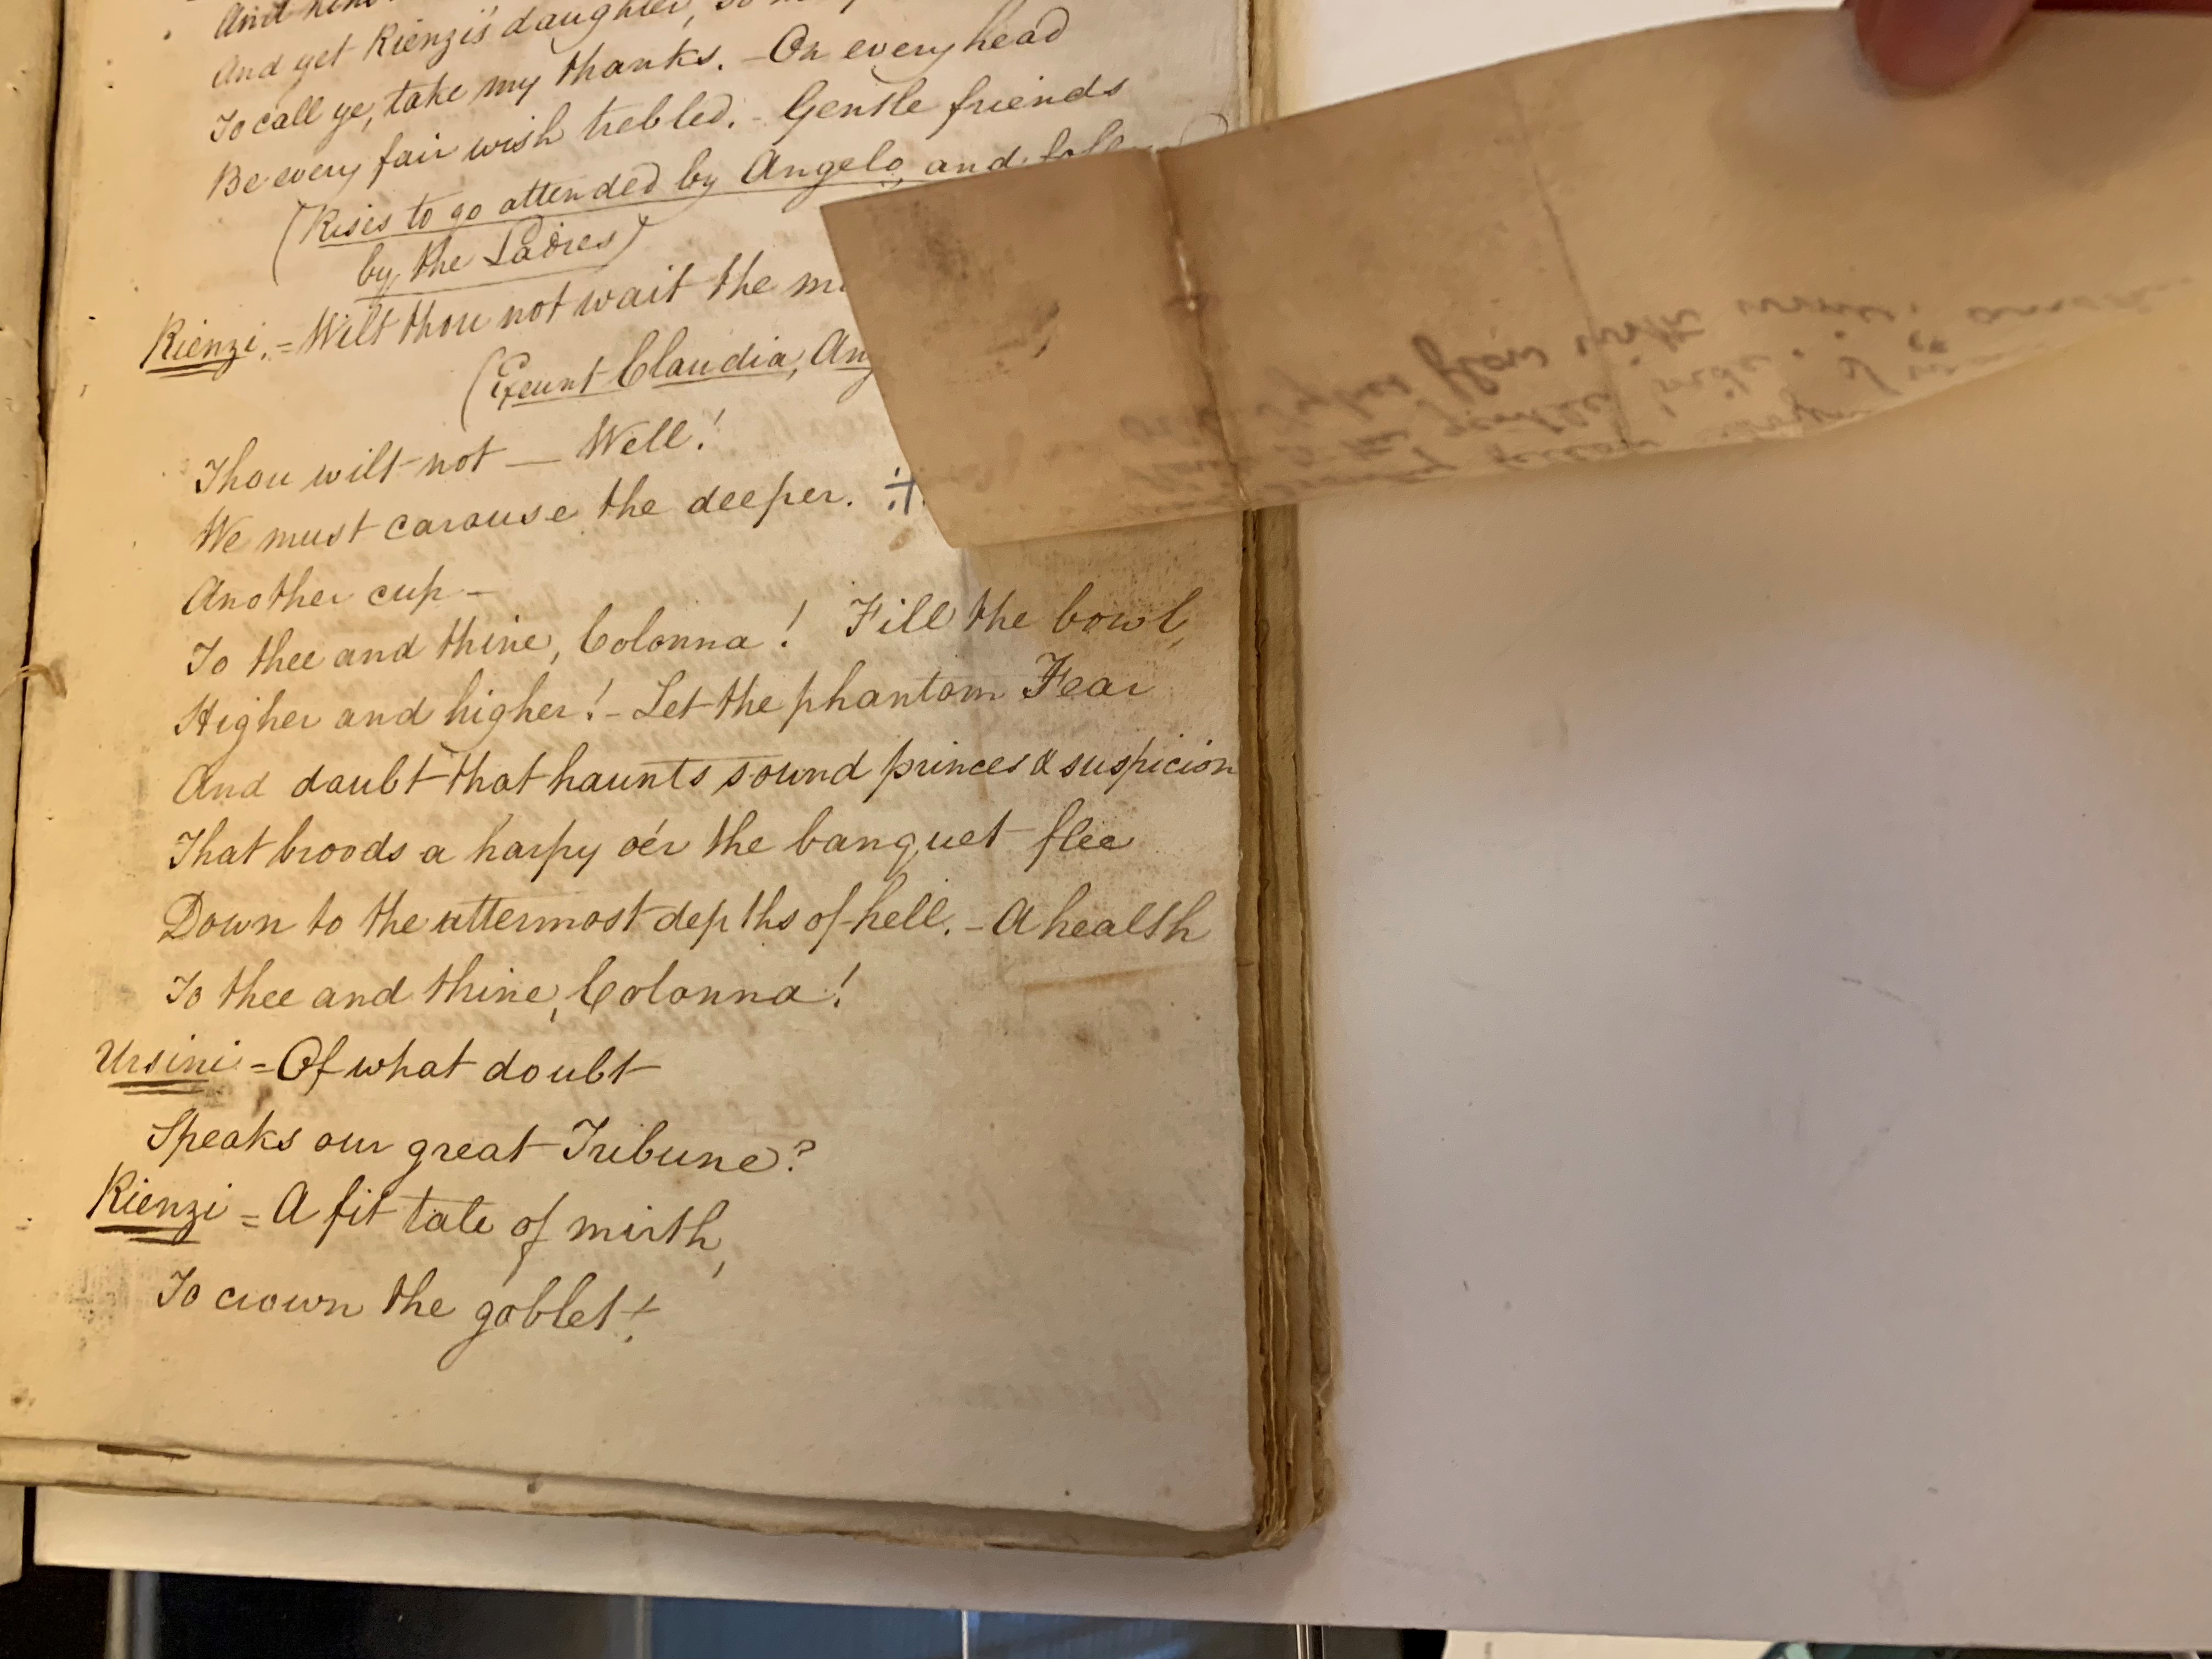 And
And yet Rienzi's daughter,
To call ye, take my thanks. - On every head
Be every fair wish trebled. - Gentle friends
(Rises to go attended by Angelo, and
by the Ladies)
Rienzi. = Wilt thou not wait the
(Exeunt Claudia, Ang
Thou wilt not — Well!
We must carouse the deeper.
Another cup -
To thee and thine, Colonna! Fill the bowl,
Higher and higher! - Let the phantom Fear
And doubt that haunts sound princes & suspicion
That broods a harpy o'er the banquet flee
Down to the uttermost depths of hell. - A health
To thee and thine, Colonna!
Ursini = Of what doubt
Speaks our great Tribune?
Rienzi = A fit tale of mirth,
To crown the goblet!
flow with wine.